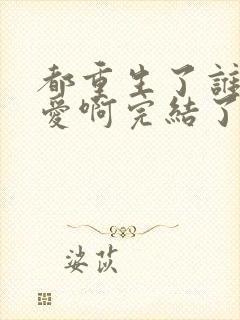 都重生了誰
愛啊完結了
娑茯